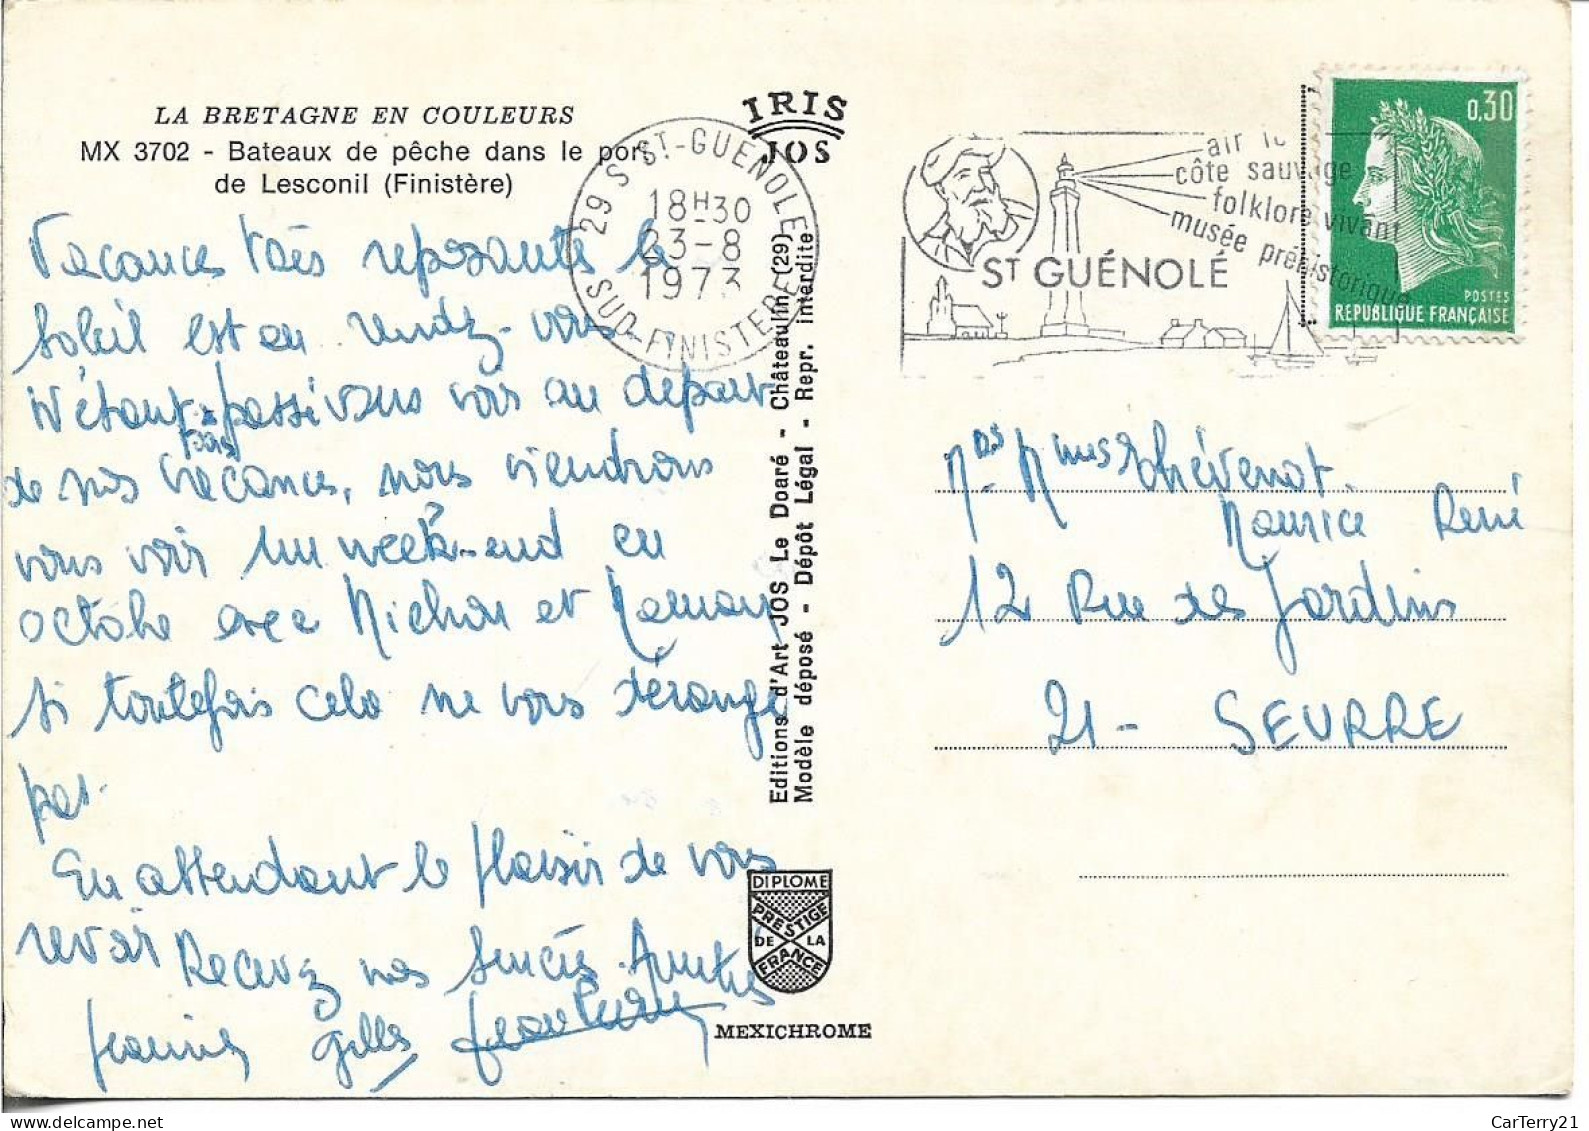 LA BRETAGNE EN COULEURS
MX 3702 - Bateaux de pêche dans le port
de Lesconil (Finistère)
IRIS
JOS
29 S ST-GUENOLE
18H30
23-8
1973
SUD-FINISTERE
air
côte sauvage
folklore vivant
musée préhistorique
ST GUÉNOLÉ
0,30
POSTES
REPUBLIQUE FRANÇAISE
Vacances très reposante le
soleil est au rendez-vous
N'étant passé vous voir au départ
de nos vacances, nous viendrons
vous voir un week-end en
octobre avec Michou et Maman
si toutefois cela ne vous dérange
pas.
En attendant le plaisir de vous
revoir Recevez nos sincères Amitiés
Jeannine Gilles
Editions d'Art JOS Le Doaré - Châteaulin (29)
Modèle déposé - Dépôt Légal - Repr. interdite
DIPLOME
PRESTIGE
DE LA
FRANCE
MEXICHROME
Mrs Mmes Thévenot
Maurice René
12 Rue des Jardins
21 - SEURRE
CarTerry21